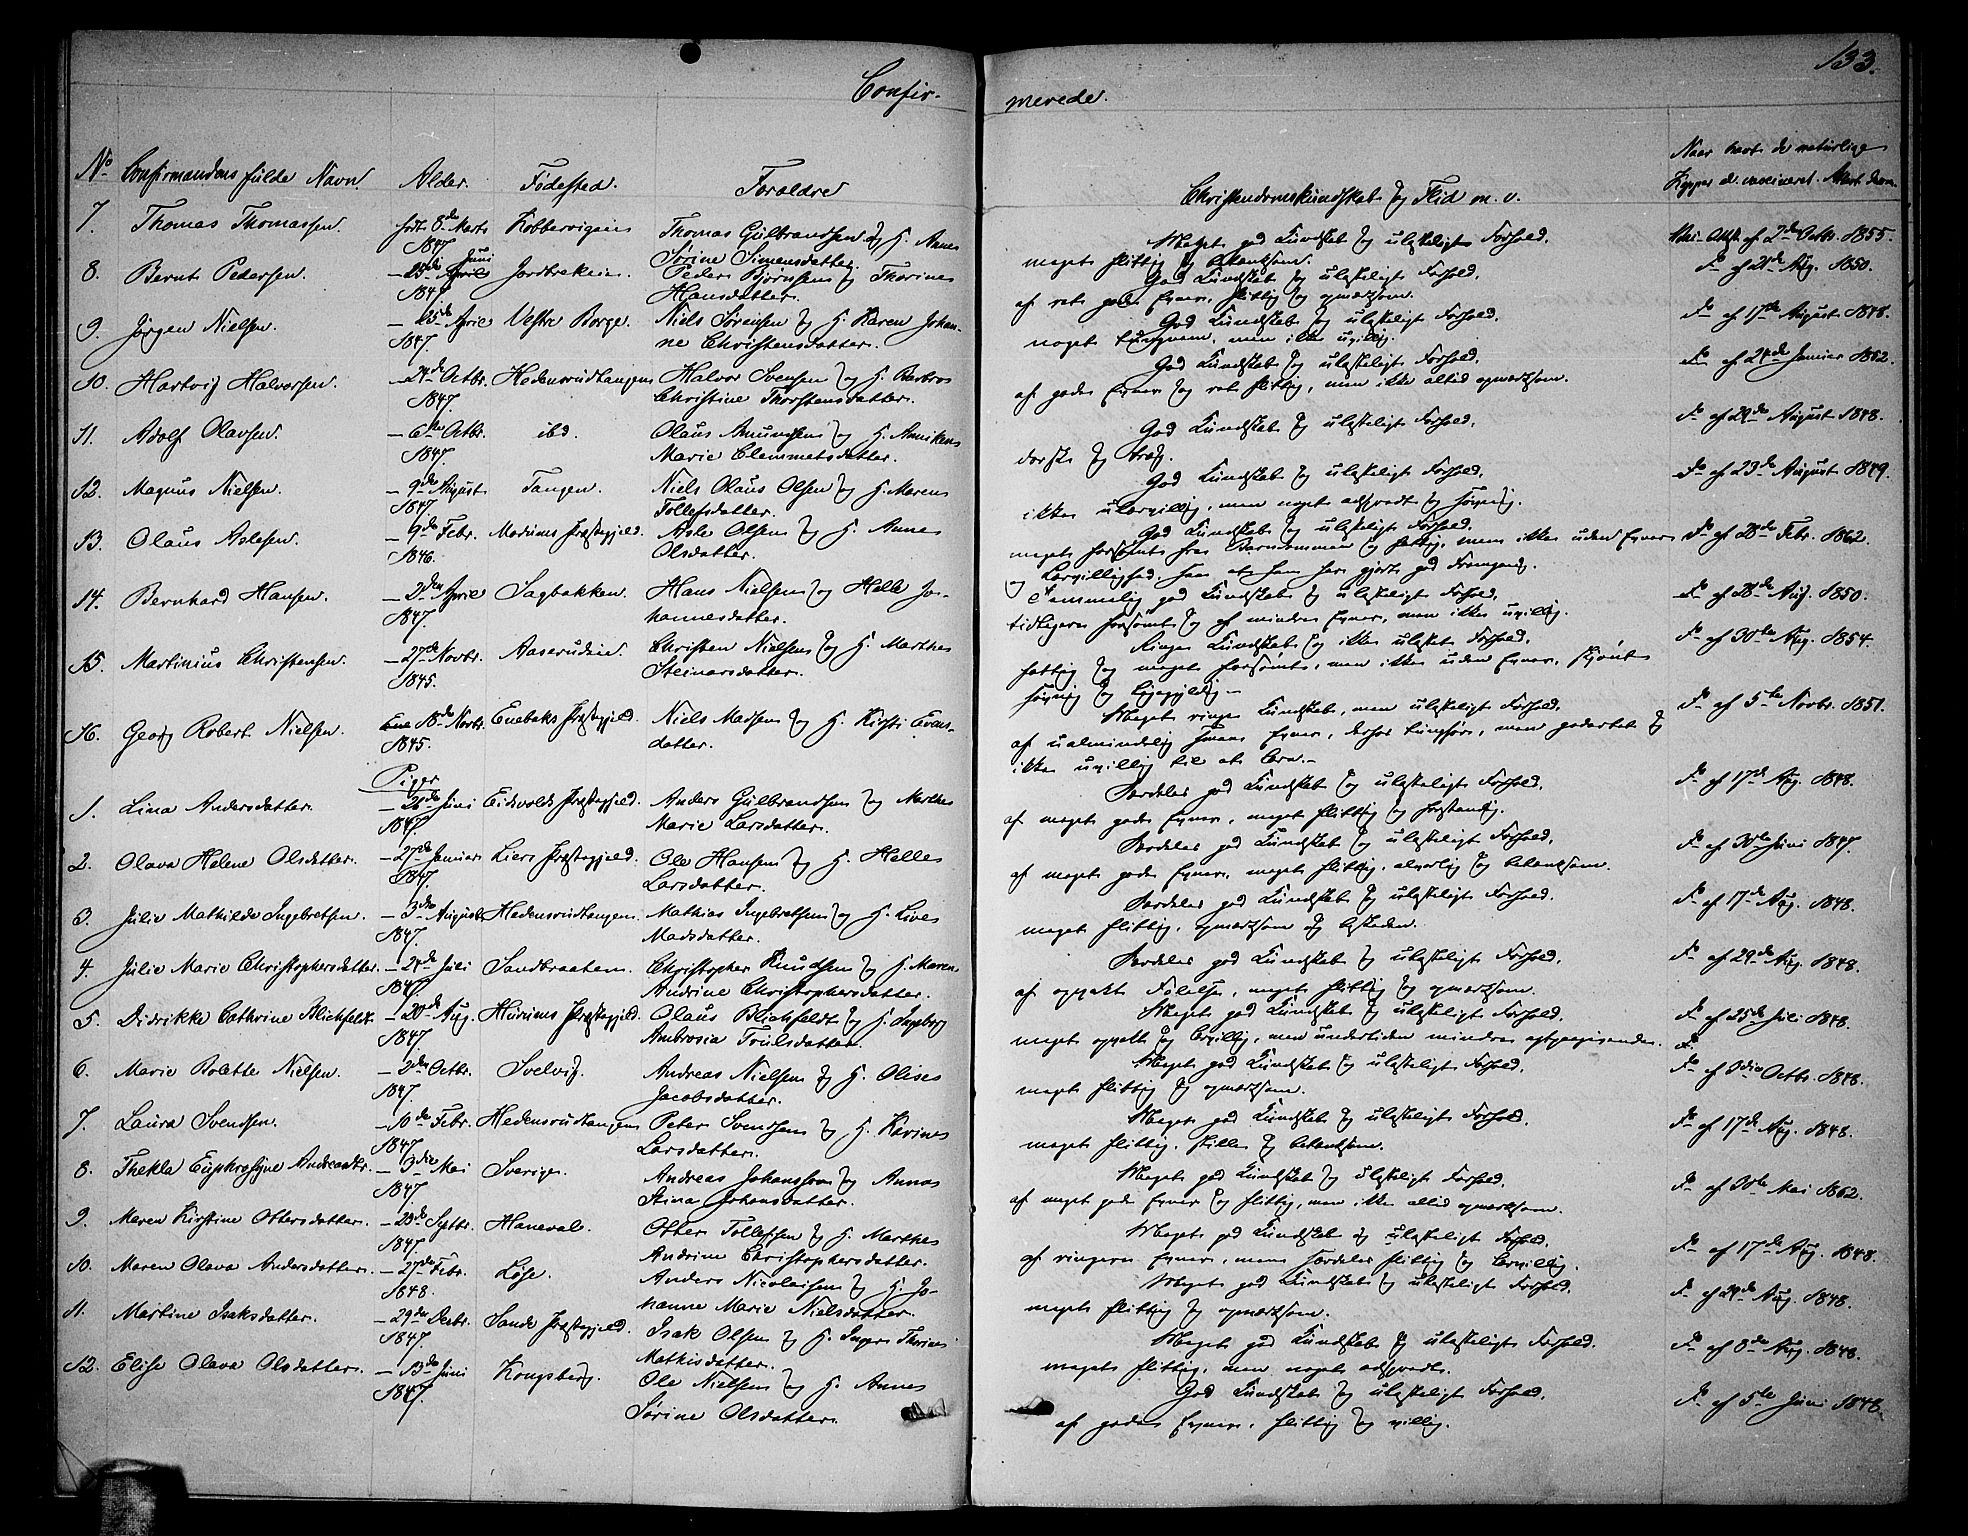 133.
Confir-
merede.
No Confirmandens fulde Navn. Alder. Fødested. Forældre Christendomskundskab og Flid m. v. Naar havt de naturlige
Kopper el. vaccineret.
7. Thomas Thomassen. født 8de Marts Kobbervigen Thomas Gulbrandsen og H. Anne Meget god Kundskab og ulasteligt Forhold. Vacc. Attst af 2den Octbr. 1855.
1847. Sørine Simensdatter. meget flittig og betænksom.
8. Bernt Pedersen. Juni Peder Bjørnsen og Thorine God Kundskab og ulasteligt Forhold. Do af 21de Aug. 1850.
1847 Hansdatter. af ret gode Evner, flittig og opmærksom.
9. Jørgen Nielsen. – 25de April Vestre Borge. Niels Sørensen og H. Karen Johan- God Kundskab og ulasteligt Forhold. Do af 17de August 1848.
1847. ne Christensdatter. noget tungnem, men ikke uvillig.
10. Hartvig Halvorsen. – 24de Octbr. Hedensrudtangen Halvor Svensen og H. Barbro God Kundskab og ulasteligt Forhold. Do af 24de Januar 1862.
1847. Christine Thorstensdatter. af gode Evner og ret flittig, men ikke altid opmærksom.
11. Adolf Olavsen. – 6te Octbr. ibd. Olaus Amundsen og H. Anniken God Kundskab og ulasteligt Forhold. Do af 29de August 1848.
1847. Marie Clemmetsdatter. dorsk og træg.
12. Magnus Nielsen. – 9de August Tangen. Niels Olaus Olsen og H. Maren God Kundskab og ulasteligt Forhold. Do af 23de August 1849.
1847. Tollefsdatter. ikke ulærvillig, men noget adspredt og søvnig.
13. Olaus Aslesen. – 9de Febr. Modums Præstegjeld. Asle Olsen og H. Anne God Kundskab og ulasteligt Forhold. Do af 28de Febr. 1862.
1846. Olsdatter. meget forsømt fra Barndommen og fattig, men ikke uden Evner
og Lærvillighed, saa at han har gjort god Fremgang.
14. Bernhard Hansen. – 2den April Sagbakken. Hans Nielsen og Helle Jo- Temmelig god Kundskab og ulasteligt Forhold. Do af 28de Aug. 1850.
1847. hannesdatter. tidligere forsømt og af mindre Evner, men ikke uvillig.
15. Martinius Christensen. – 27de Novbr. Aaserudeie. Christen Nielsen og H. Marthe Ringe Kundskab og ikke ulastet Forhold. Do af 30te Aug. 1854.
1845. Steinarsdatter. fattig og meget forsømt, men ikke uden Evner, skjønt
søvnig og ligegyldig –
16. Georg Robert Nielsen. 18de Novbr. Enebaks Præstegjeld. Niels Madsen og H. Kirsti Evens- Meget ringe Kundskab, men ulasteligt Forhold. Do af 5te Novbr. 1851.
1845. datter. af ualmindelig smaa Evner, derfor tungfør, men godartet og
ikke uvillig til at lære. –
Piger
1. Lina Andersdatter. – 26de Juni Eidsvolds Præstegjeld. Anders Gulbrandsen og Marthe Særdeles god Kundskab og ulasteligt Forhold. Do af 17de Aug. 1848.
1847 Marie Larsdatter. af meget gode Evner, meget flittig og forstandig.
2. Olava Helene Olsdatter. – 27de Januar Liers Præstegjeld. Ole Hansen og H. Helle Særdeles god Kundskab og ulasteligt Forhold. Do af 30te Juni 1847.
1847. Larsdatter. af meget gode Evner, meget flittig, alvorlig og betænksom.
3. Julie Mathilde Ingebretsen. – 3die August Hedensrudtangen. Mathias Ingebretsen og H. Live Særdeles god Kundskab og ulasteligt Forhold. Do af 17de Aug. 1848.
1847. Madsdatter. meget flittig, opmærksom og beskeden.
4. Julie Marie Christophersdatter. – 24de Juli Sandbraaten. Christopher Knudsen og H. Maren Særdeles god Kundskab og ulasteligt Forhold. Do af 29de Aug. 1848.
1847. Andrine Christophersdatter. af opvakt Følelse, meget flittig og opmærksom.
5. Didrikke Cathrine Blichfeldt. – 20de Aug. Hurums Præstegjeld. Olaus Blichfeldt og H. Ingeborg Meget god Kundskab og ulasteligt Forhold. Do af 25de Juli 1848.
1847. Ambrosia Troulsdatter. meget opvakt og lærvillig, men undertiden mindre eftergivende.
6. Marie Bolette Nielsen. – 2den Octbr. Svelvig. Andreas Nielsen og H. Olise Meget god Kundskab og ulasteligt Forhold. Do af 3die Octbr. 1848.
1847. Jacobsdatter. meget flittig og opmærksom.
7. Laura Svendsen. – 10de Febr. Hedensrudtangen Peter Svendsen og H. Karine Meget god Kundskab og ulasteligt Forhold. Do af 17de Aug. 1848.
1847. Larsdatter. meget flittig, stille og betænksom.
8. Thekla Euphrosyne Andreasdtr. – 3die Mai Sverige. Andreas Johansson og Anna Meget god Kundskab og ulasteligt Forhold. Do af 30te Mai 1862.
1847. Stina Johansdatter. af meget gode Evner og flittig, men ikke altid opmærksom.
9. Maren Kirstine Ottersdatter. – 20de Septbr. Haneval. Otter Tollefsen og H. Marthe Meget god Kundskab og ulasteligt Forhold. Do af 17de Aug. 1848.
1847. Andrine Christophersdatter. af ringere Evner, men særdeles flittig og lærvillig.
10. Maren Olava Andersdatter. – 27de Febr. Løse. Anders Nicolaisen og H. Jo- Meget god Kundskab og ulasteligt Forhold. Do af 29de Aug. 1848.
1848. hanne Marie Nielsdatter. meget flittig og opmærksom.
11. Martine Isaksdatter. – 29de Decbr. Sande Præstegjeld. Isak Olsen og H. Inger Thorine Meget god Kundskab og ulasteligt Forhold. Do af 8de Aug. 1848.
1847. Mathisdatter. meget flittig, men noget adspredt.
12. Elise Olava Olsdatter. – 13de Juni Kongsberg. Ole Nielsen og H. Anne God Kundskab og ulasteligt Forhold. Do af 5te Juni 1848.
1847. Sørine Olsdatter. af gode Evner, flittig og villig.